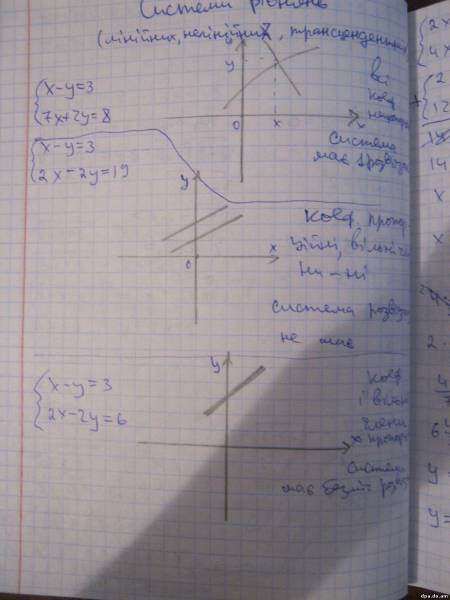 Системи рівнянь
(лінійних, нелінійних, трансцендентних)
x-y=3
7x+2y=8
y
всі
коеф.
0
x
x
система
має 1 розвяз
x-y=3
2x-2y=19
y
коеф. пропор
ційні, вільні чле
ни - ні
x
0
система розвяз
не має
x-y=3
2x-2y=6
y
коеф.
і вільн
члени
x пропор
система
має безліч розвяз
2x
4x
2
12
14
14
x
x
2.
4
7
6y
y
y=
dpa.do.am